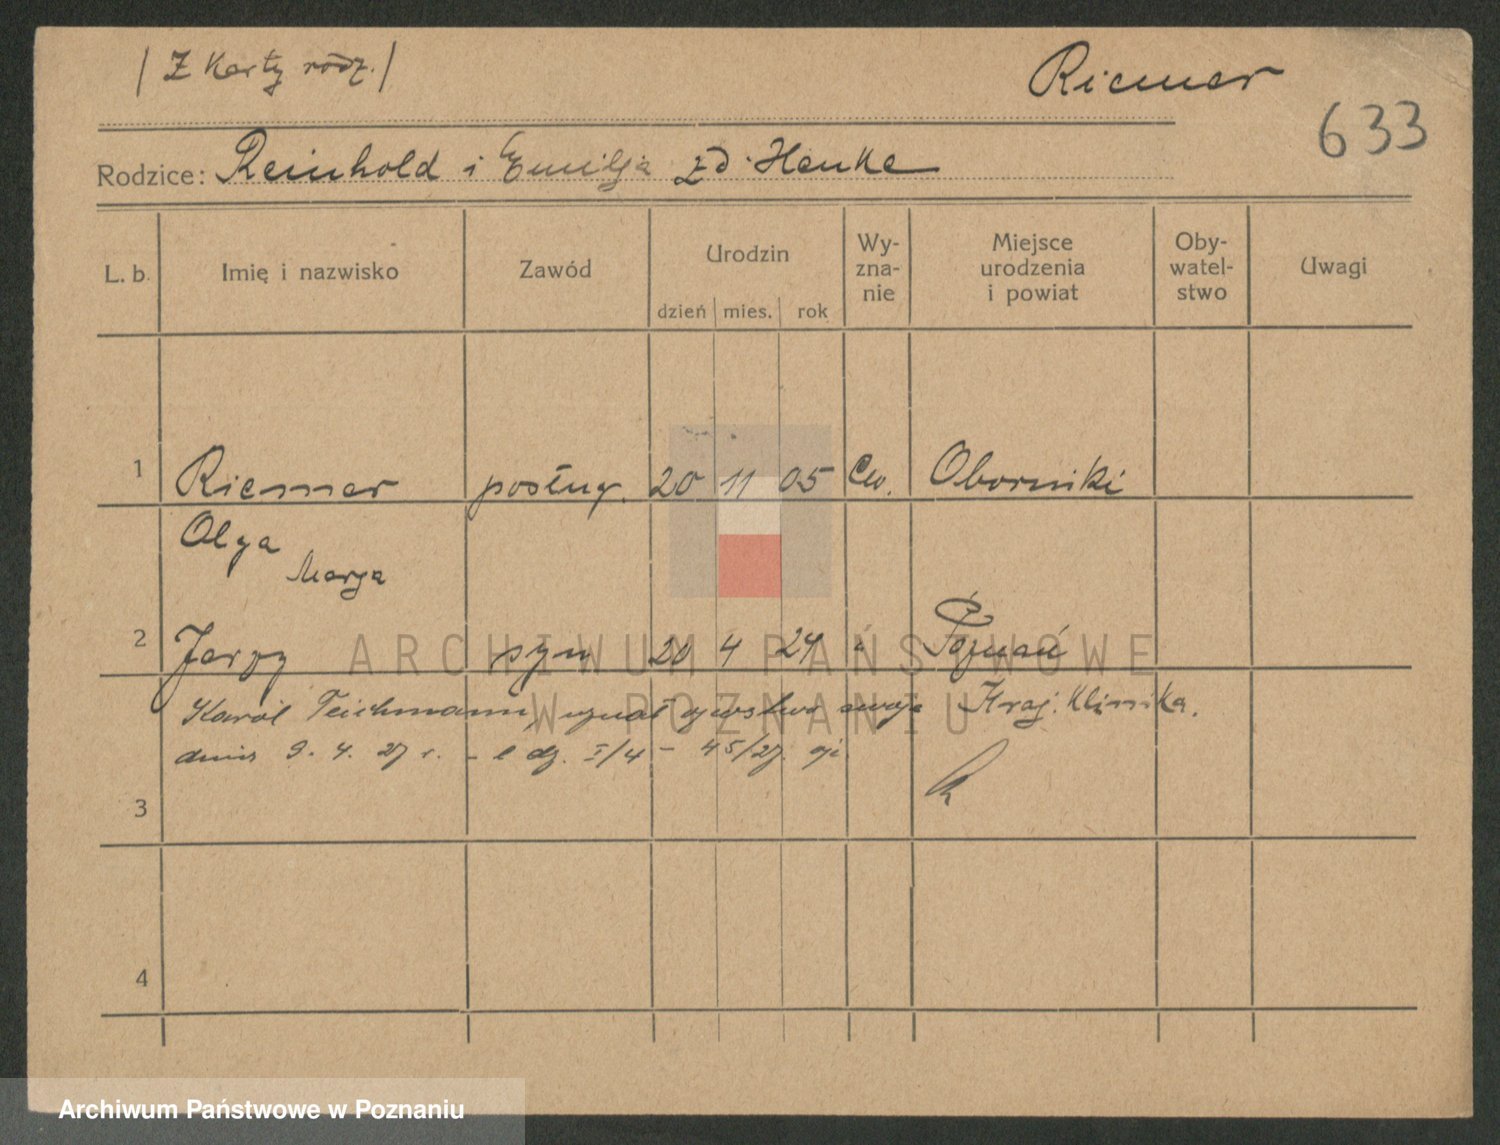 / Z Karty rodz. /
Riemer
633
Rodzice: Reinhold i Emilja zd. Henke
L. b.
Imię i nazwisko
Zawód
Urodzin
dzień mies. rok
Wy-
zna-
nie
Miejsce
urodzenia
i powiat
Oby-
watel-
stwo
Uwagi
1 Riemer posług. 20 11 05 Ew. Oborniki
Olga
Marga
2 Jerzy syn 20 4 24 " Poznań
Karol Teichmann uznał ojcostwo swoje Kraj. Klinika.
dnia 9. 4. 27 r. - l dz. I/4 - 45/27.
3
4
ARCHIWUM PAŃSTWOWE
W POZNANIU
Archiwum Państwowe w Poznaniu